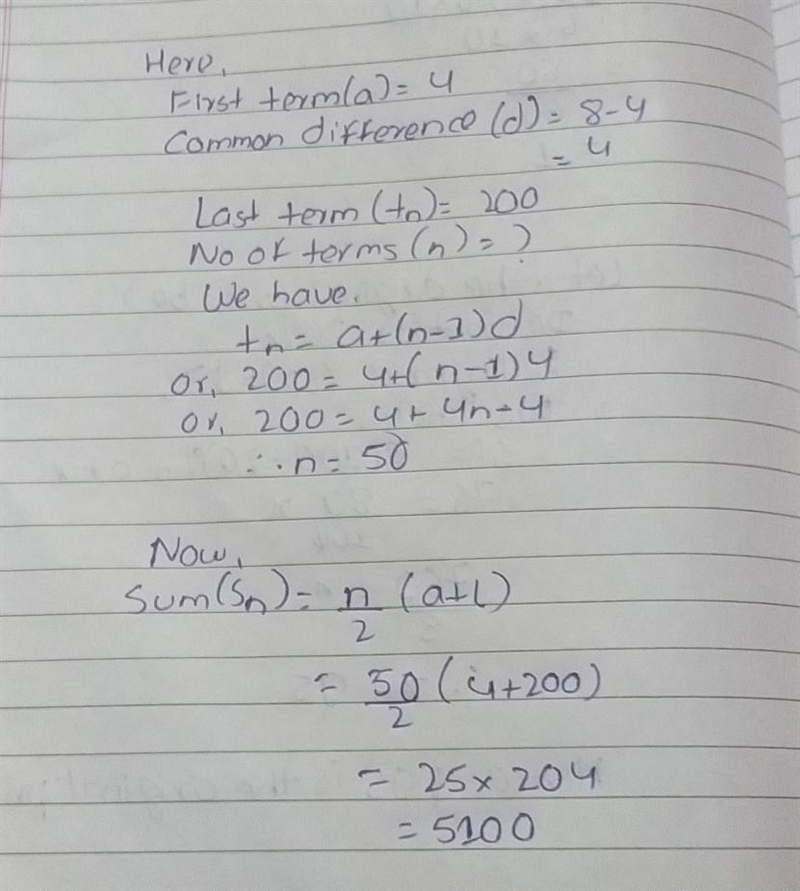 Here,
First term(a)= 4
Common difference (d)= 8-4
= 4
Last term (tn)= 200
No of terms (n) = ?
We have.
tn = a+(n-1)d
or, 200 = 4+(n-1)4
or, 200 = 4+ 4n-4
∴ n = 50
Now,
Sum(Sn) = n/2 (a+l)
= 50/2 (4+200)
= 25 x 204
= 5100